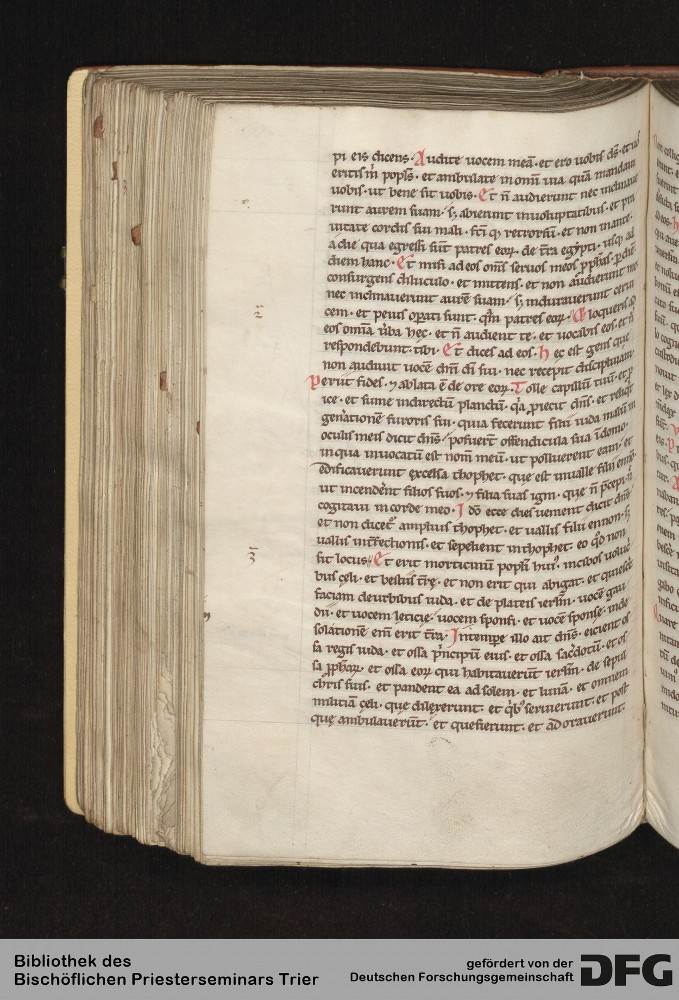 pi eis dicens. Audite uocem meā. et ero uobis ds̄. et uos
eritis m̄ popls̄. et ambulate in om̄i uia quā mandaui
uobis. ut bene sit uobis. Et n̄ audierunt nec inclinaue
runt aurem suam. s; abierunt in uoluptatibus. et pra
uitate cordis sui mali. fc̄ti q; retrorsū. et non in ante.
a die qua egressi sūt patres eoꝝ. de t̄ra egypti. usq; ad
diem hanc. Et misi ad eos om̄s seruos meos ꝓph̄as. ꝑ diē
consurgens diluculo. et mittens. et non audierunt me.
nec inclinauerunt aurē suam. s; indurauerunt cerui
cem. et peius oꝑati sunt. qm̄ patres eoꝝ. Et loqueris
eos omīa ūba hęc. et n̄ audient te. et uocabis eos. et n̄
respondebunt tibi. Et dices ad eos. Hęc est gens que
non audiuit uocē dn̄i di sui. nec recepit disciplinam.
Periit fides. ⁊ ablata ē de ore eoꝝ. Tolle capillū tuū. et ꝓ
ice. et sume in directū planctū. qa ꝓiecit dn̄s. et reliqt
gen̄ationē furoris sui. quia fecerunt filii iuda malū in
oculis meis dicit dn̄s. posuert̄ offendicula sua ī domo.
in qua inuocatū est nom̄ meū. ut polluerent eam. et
edificauerunt excelsa thophet. que est in ualle filii ennon.
ut incendēnt filios suos. ⁊ filias suas igni. que n̄ p̄cepi. n̄
cogitaui in corde meo. Idō ecce dies uenient dicit dn̄s.
et non dicet̄ amplius thophet. et uallis filii ennon. s;
uallis int̄fectionis. et sepelient in thophet. eo qd̄ non
sit locus. Et erit morticinū popl̄i hui'. in cibos uolucr̄
bus cęli. et bestiis t̄rę. et non erit qui abigat. et quiesce
faciam de urbibus iuda. et de plateis ierl̄m. uocē gau
dii. et uocem leticię. uocem sponsi. et uocē sponse. in de
solationē eni erit t̄ra. In tempr̄e illo ait dn̄s. eicient os
sa regis iuda. et ossa p̄ncipū eius. et ossa sac̄dotū. et os
sa ꝓph̄aꝝ. et ossa eoꝝ qui habitauerūt ierl̄m. de sepul
chris suis. et pandent ea ad solem. et lunā. et omnem
militiam cęli. que dilexerunt. et qb' seruierunt. et post
que ambulauerūt. et quesierunt. et adorauerunt.
Bibliothek des
Bischöflichen Priesterseminars Trier
gefördert von der
Deutschen Forschungsgemeinschaft
DFG